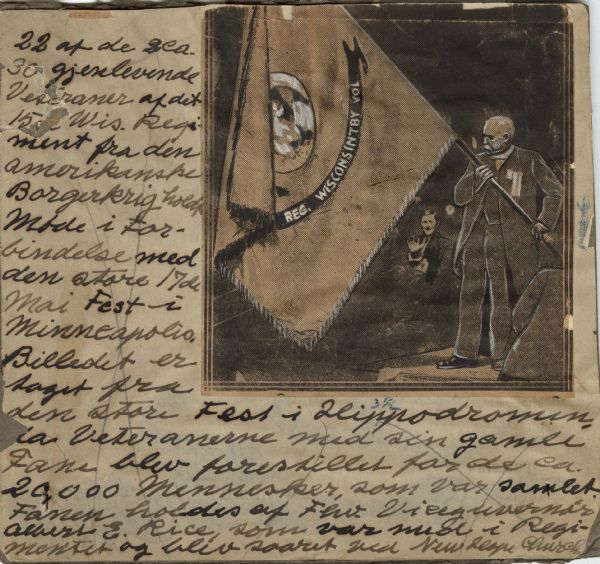 22 af de ca.
30 gjenlevende
Veteraner af dit
15de Wis. Regi-
ment fra den
amerikanske
Borgerkrig holdt
Møde i For-
bindelse med
den store 17de
Mai Fest i
Minneapolis.
Billedet er
taget fra
den store Fest i Hippodromen,
da Veteranerne med sin gamle
Fane blev forestillet for de ca.
20,000 Mennesker, som var samlet.
Fanen holdes af Fhv. Viceguvernør
Albert E. Rice, som var med i Regi-
mentet og blev saaret ved New Hope Church.
REG. WISCONSIN TBY VOL